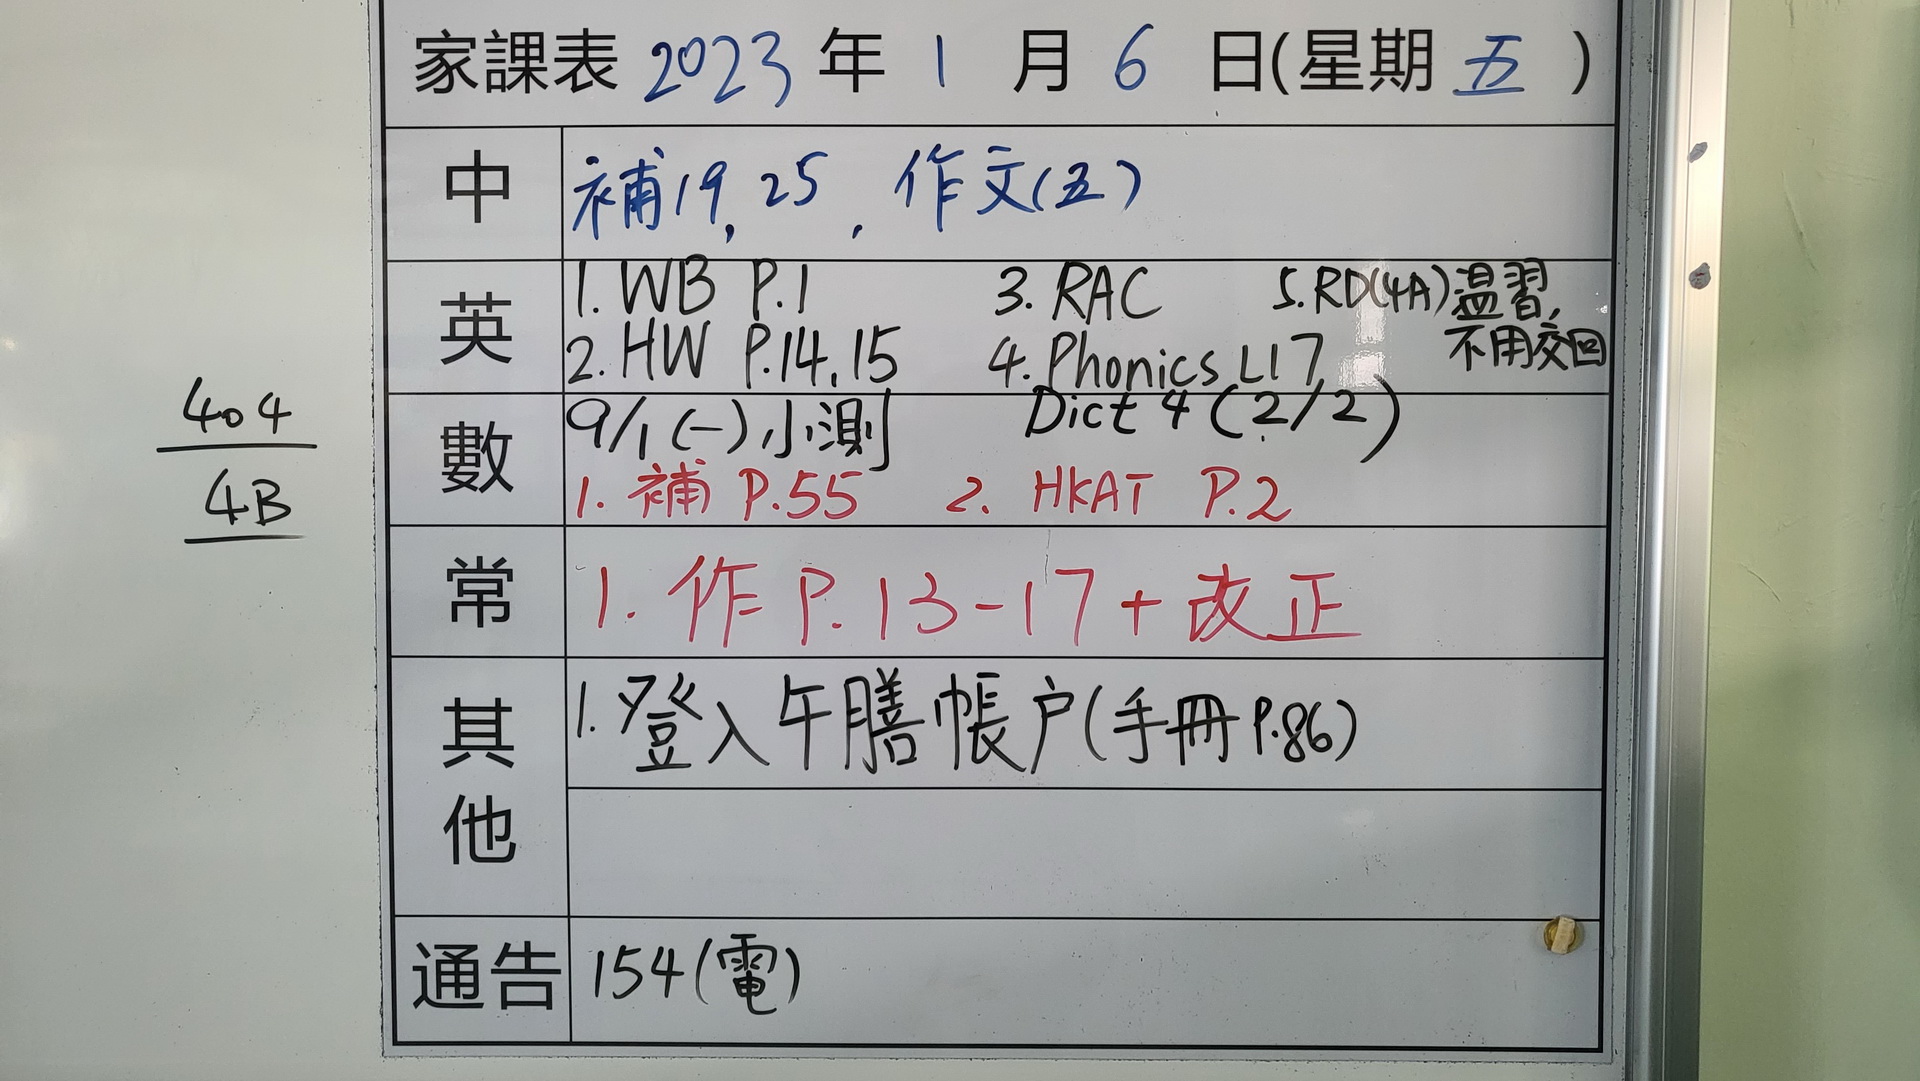 家課表 2023 年 1 月 6 日(星期 五 )
中 補19, 25, 作文(五)
英
1. WB P.1 3. RAC 5. RD(4A)温習,
不用交回
2. HW P.14, 15 4. Phonics L17
數
9/1 (一) 小測 Dict 4 (2/2)
1. 補 P.55 2. HKAT P.2
常 1. 作 P.13-17 + 改正
其他
1. 登入午膳帳户(手冊P.86)
通告 154(電)
404
4B